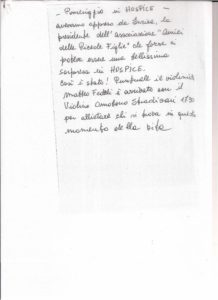 - Pomeriggio in HOSPICE -
avevamo appreso da Luisa, la
presidente dell'Associazione "Amici
delle Piccole Figlie" che forse ci
poteva essere una bellissima
sorpresa in HOSPICE.
Così è stato! Puntuale il violinista
Matteo Fedeli è arrivato con il
Violino Amoroso Stradivari 1730
per allietare chi si trova in questo
momento della vita